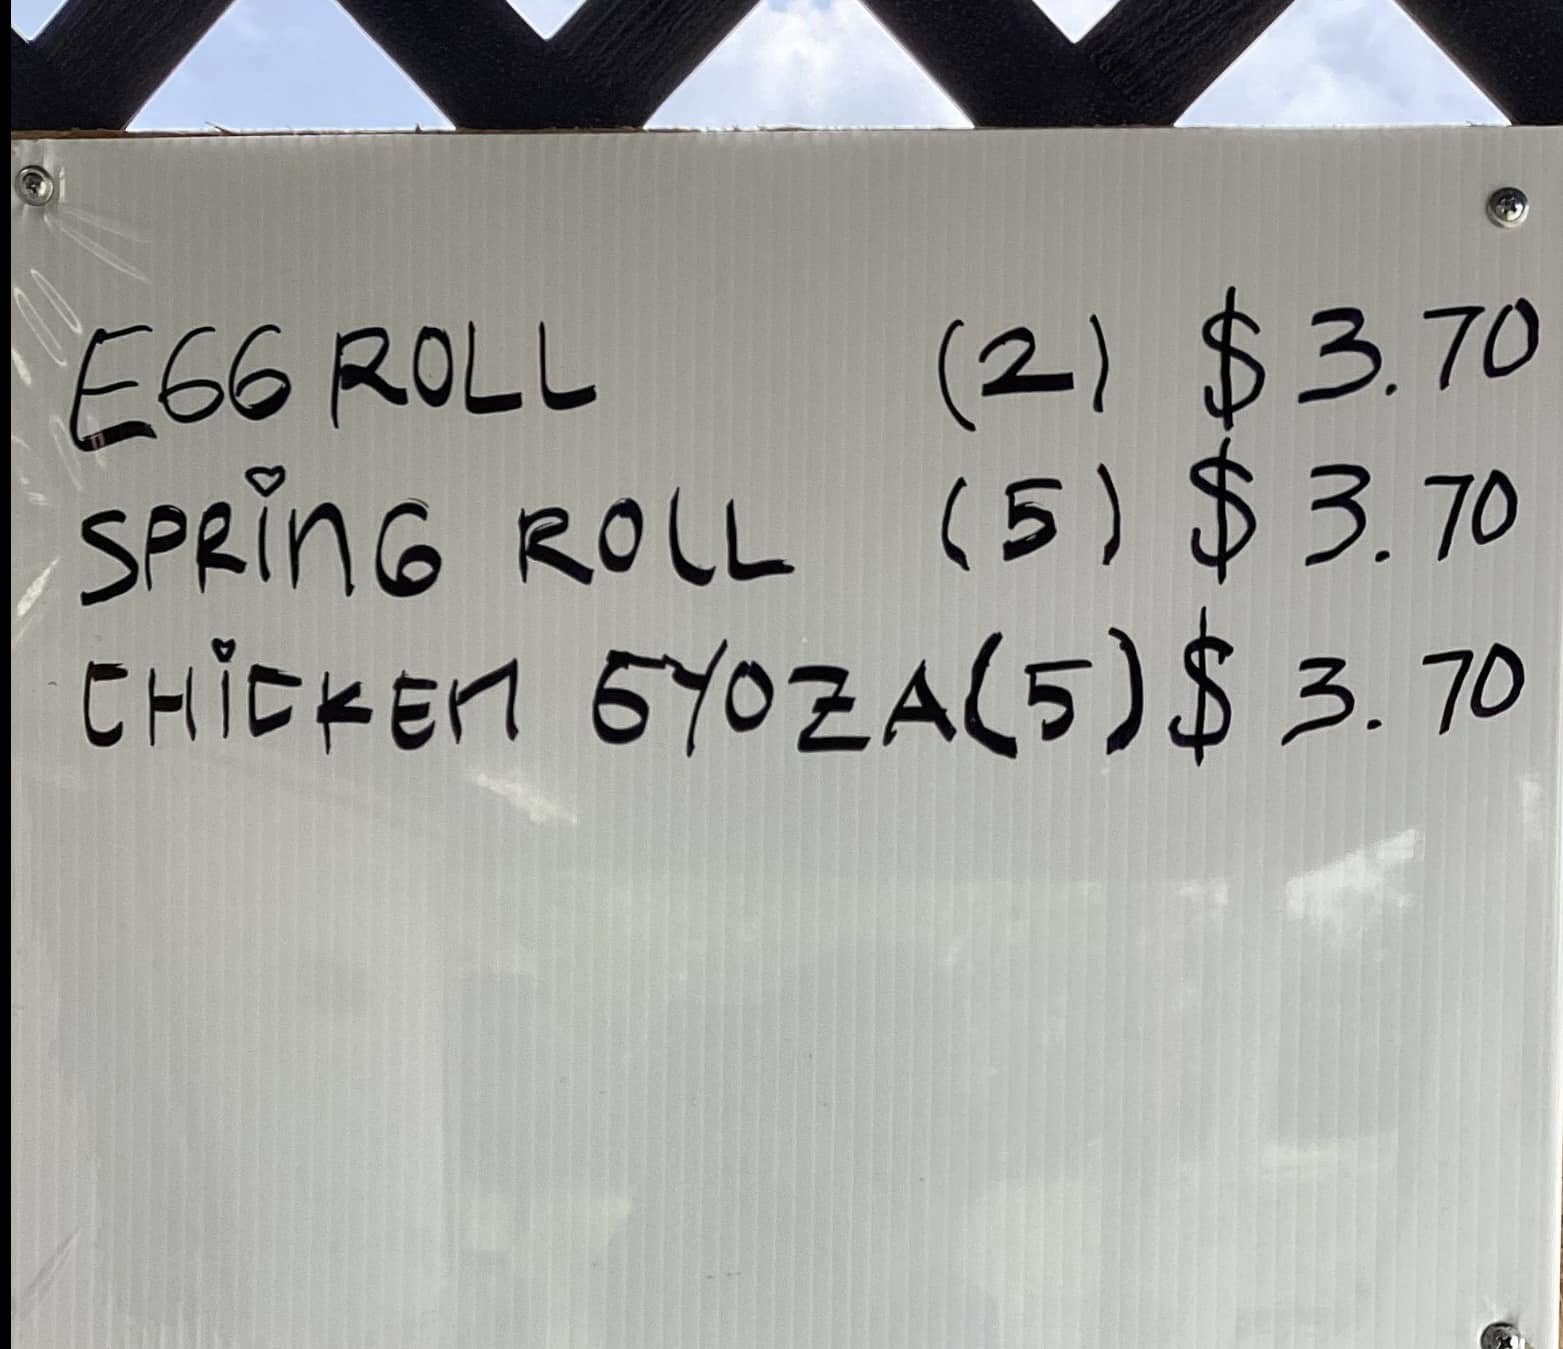 EGG ROLL (2) $3.70
SPRiNG ROLL (5) $3.70
CHiCKEN GYOZA (5) $3.70